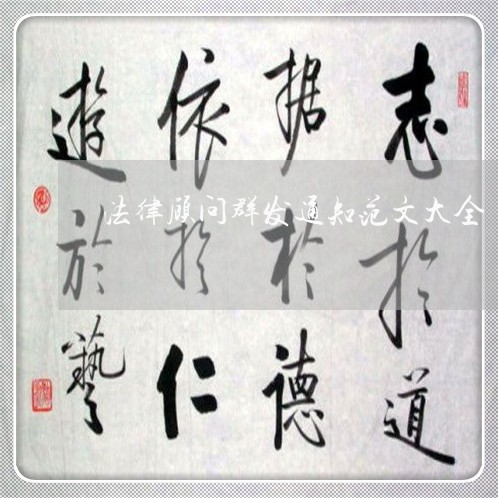 志於道
据於德
依於仁
遊於藝
法律顾问群发通知范文大全